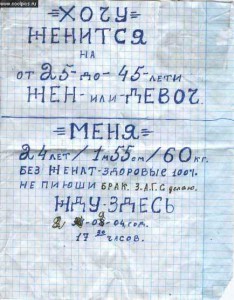 www.coolpics.ru
=ХОЧУ=
ЖЕНИТСЯ
НА
ОТ 25-ДО-45-ЛЕТИ
ЖЕН-ИЛИ ДЕВОЧ.
=МЕНЯ=
24 ЛЕТ/1М55СМ/60КГ.
БЕЗ ЖЕНАТ-ЗДОРОВЫЕ 100%
НЕ ПИЮШИ БРАК. З.А.Г.С делаю.
ЖДУ-ЗДЕСЬ
04год.
17 ЧАСОВ.